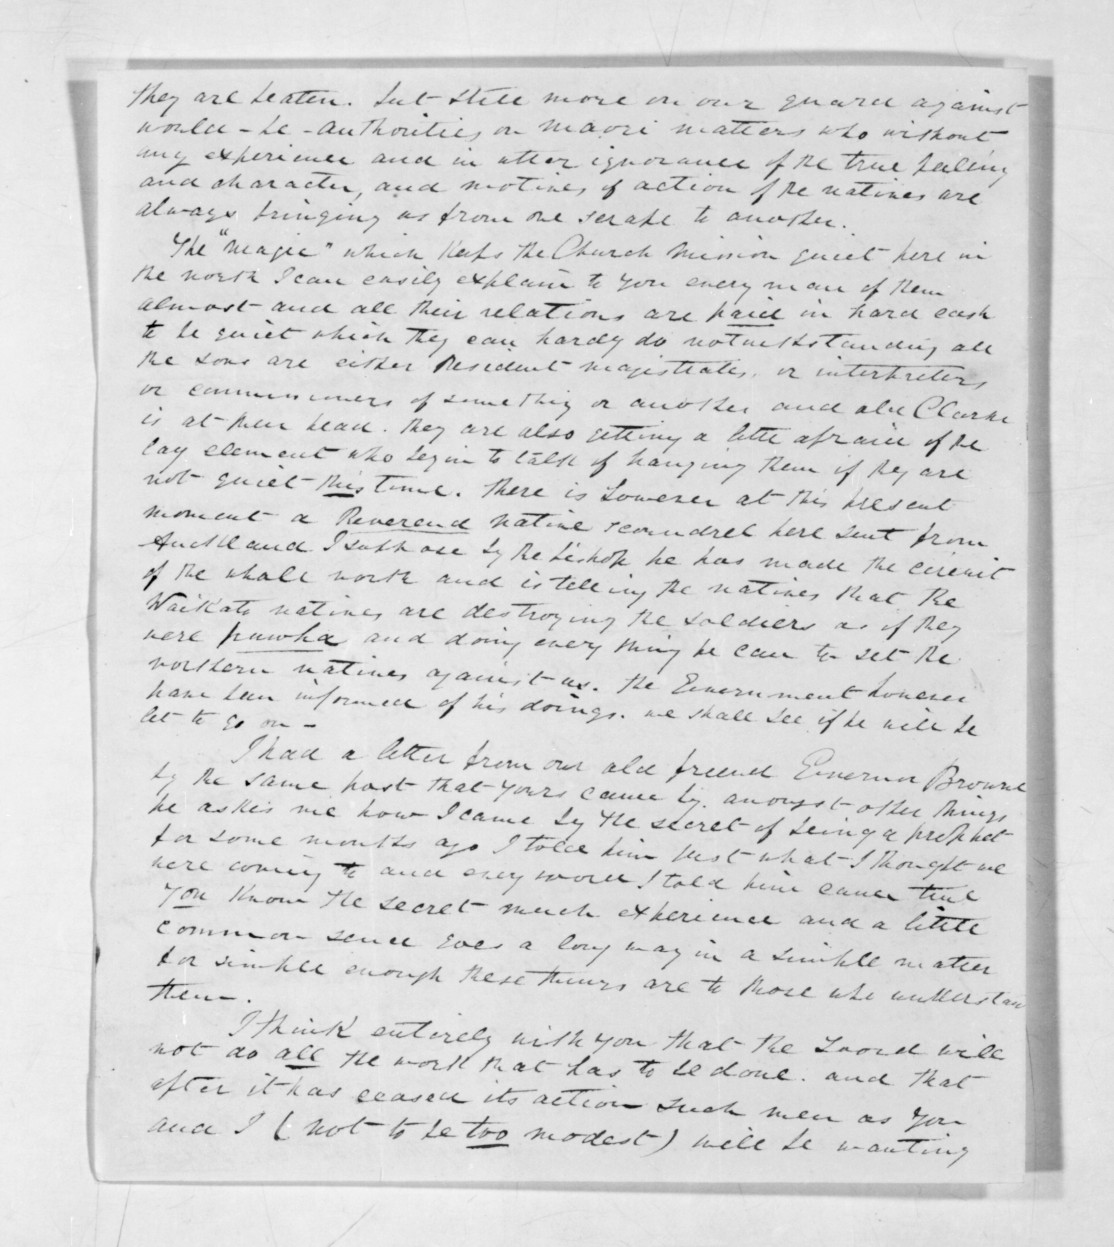 they are beaten. but still more on our guard against
would-be-authorities on maori matters who without
any experience and in utter ignorance of the true feeling
and character, and motives of action of the natives are
always bringing us from one scrape to another.
The "magic" which keeps the Church mission quiet here in
the north I can easily explain to you every man of them
almost and all their relations are paid in hard cash
to be quiet which they can hardly do notwithstanding all
the sons are either Resident magistrates. or interpreters
or commissioners of something or another and old Clarke
is at their head. they are also getting a little afraid of the
lay element who begin to talk of hanging them if they are
not quiet this time. there is however at this present
moment a Reverend native scoundrel here sent from
Auckland I suppose by the bishop he has made the circuit
of the whole north and is telling the natives that the
Waikato natives are destroying the soldiers as if they
were pawha and doing every thing he can to set the
northern natives against us. the Government however
have been informed of his doings. we shall see if he will be
let to go on -
I had a letter from our old friend Governor Browne
by the same post that yours came by. amongst other things
he asks me how I came by the secret of being a prophet
for some months ago I told him just what I thought we
were coming to and every word I told him came true
you know the secret much experience and a little
common sence goes a long way in a simple matter
for simple enough these things are to those who understand
them -.
I think entirely with you that the sword will
not do all the work that has to be done. and that
after it has ceased its action such men as you
and I (not to be too modest) will be wanting